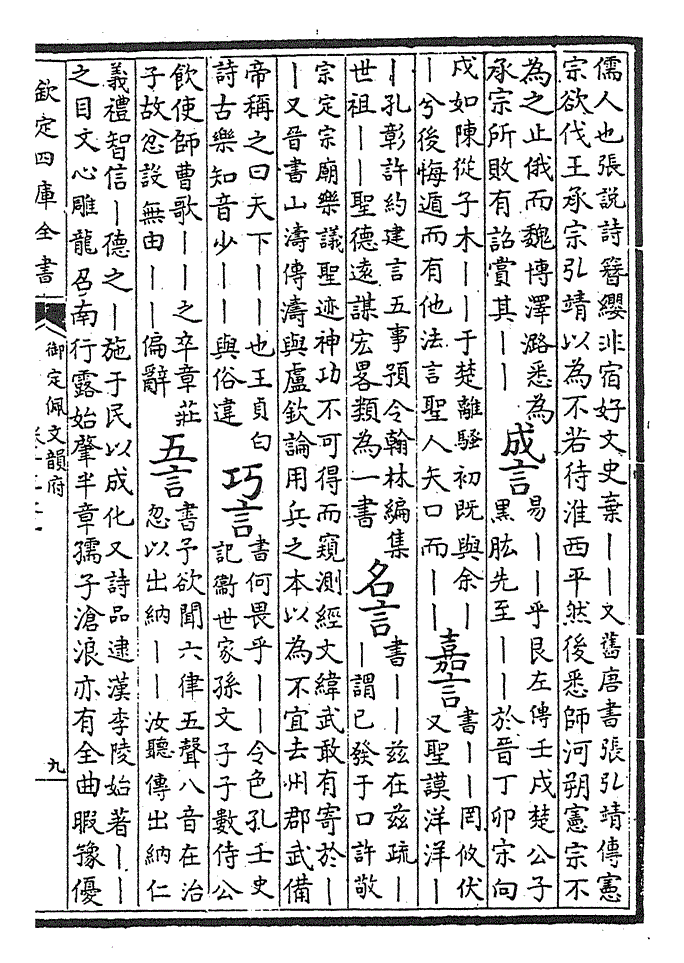 儒人也張說詩簪纓非宿好文史棄丨丨又舊唐書張弘靖傳憲
宗欲伐王承宗弘靖以為不若待淮西平然後悉師河朔憲宗不
為之止俄而魏博澤潞悉為
承宗所敗有詔賞其丨丨
成言
易丨丨乎艮左傳壬戌楚公子
黑肱先至丨丨於晉丁卯宋向
戍如陳從子木丨丨于楚離騷初既與余丨
丨兮後悔遁而有他法言聖人矢口而丨丨
嘉言
書丨丨罔攸伏
又聖謨洋洋丨
丨孔彰許約建言五事預令翰林編集
世祖丨丨聖德遠謀宏畧類為一書
名言
書丨丨茲在茲疏丨
丨謂已發于口許敬
宗定宗廟樂議聖迹神功不可得而窺測經文緯武敢有寄於丨
丨又晉書山濤傳濤與盧欽論用兵之本以為不宜去州郡武備
帝稱之曰天下丨丨也王貞白
詩古樂知音少丨丨與俗違
巧言
書何畏乎丨丨令色孔壬史
記衞世家孫文子子數侍公
飲使師曹歌丨丨之卒章莊
子故忿設無由丨丨偏辭
五言
書予欲聞六律五聲八音在治
忽以出納丨丨汝聽傳出納仁
義禮智信丨德之丨施于民以成化又詩品逮漢李陵始著丨丨
之目文心雕龍召南行露始肇半章孺子滄浪亦有全曲暇豫優
欽定四庫全書
御定佩文韻府
九